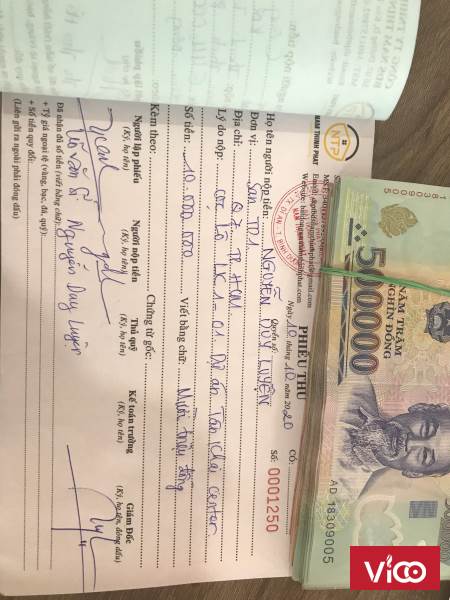 NAM THỊNH PHÁT
NTP
PHIẾU THU
Ngày 10 tháng 10 năm 2020
Quyển số:
Số: 0001250
CÓ:
Họ tên người nộp tiền: NGUYỄN DUY LUYỆN
Đơn vị: Sàn TD1
Địa chỉ: Q7, TP HCM
Lý do nộp: cọc lô LK1-01 Dự án Tân Khai Center
Số tiền: 10.000.000 Viết bằng chữ: Mười triệu đồng
Kèm theo: Chứng từ gốc:
Người lập phiếu
(Ký, họ tên)
Người nộp tiền
(Ký, họ tên)
Thủ quỹ
(Ký, họ tên)
Kế toán trưởng
(Ký, họ tên)
Giám Đốc
(Ký, họ tên, đóng dấu)
Nguyễn Duy Luyện
Đã nhận đủ số tiền (viết bằng chữ):
+ Tỷ giá ngoại tệ (vàng, bạc, đá quý):
+ Số tiền quy đổi:
(Liên gửi ra ngoài phải đóng dấu)
500.000
NĂM TRĂM
NGHÌN ĐỒNG
AD 18309005
18309005
Vico